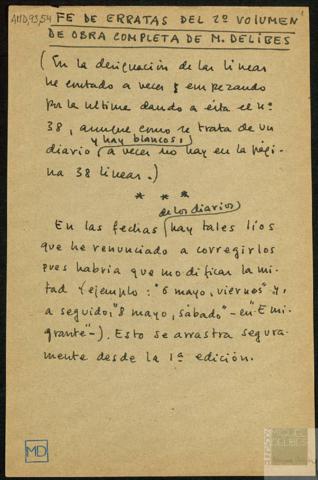 AMD,93,54 FE DE ERRATAS DEL 2º VOLUMEN
DE OBRA COMPLETA DE M. DELIBES
(En la designación de las líneas
he contado a veces empezando
por la última dando a ésta el nº
38, aunque como se trata de un
y hay blancos,
diario (a veces no hay en la pági-
na 38 líneas.)
* * *
de los diarios
En las fechas (hay tales líos
que he renunciado a corregirlos
pues habría que modificar la mi-
tad (ejemplo: "6 mayo, viernes" y,
a seguido, "8 mayo, sábado" - en "Emi-
grante" -). Esto se arrastra segura-
mente desde la 1ª edición.
MD
FUNDACIÓN
MIGUEL
DELIBES